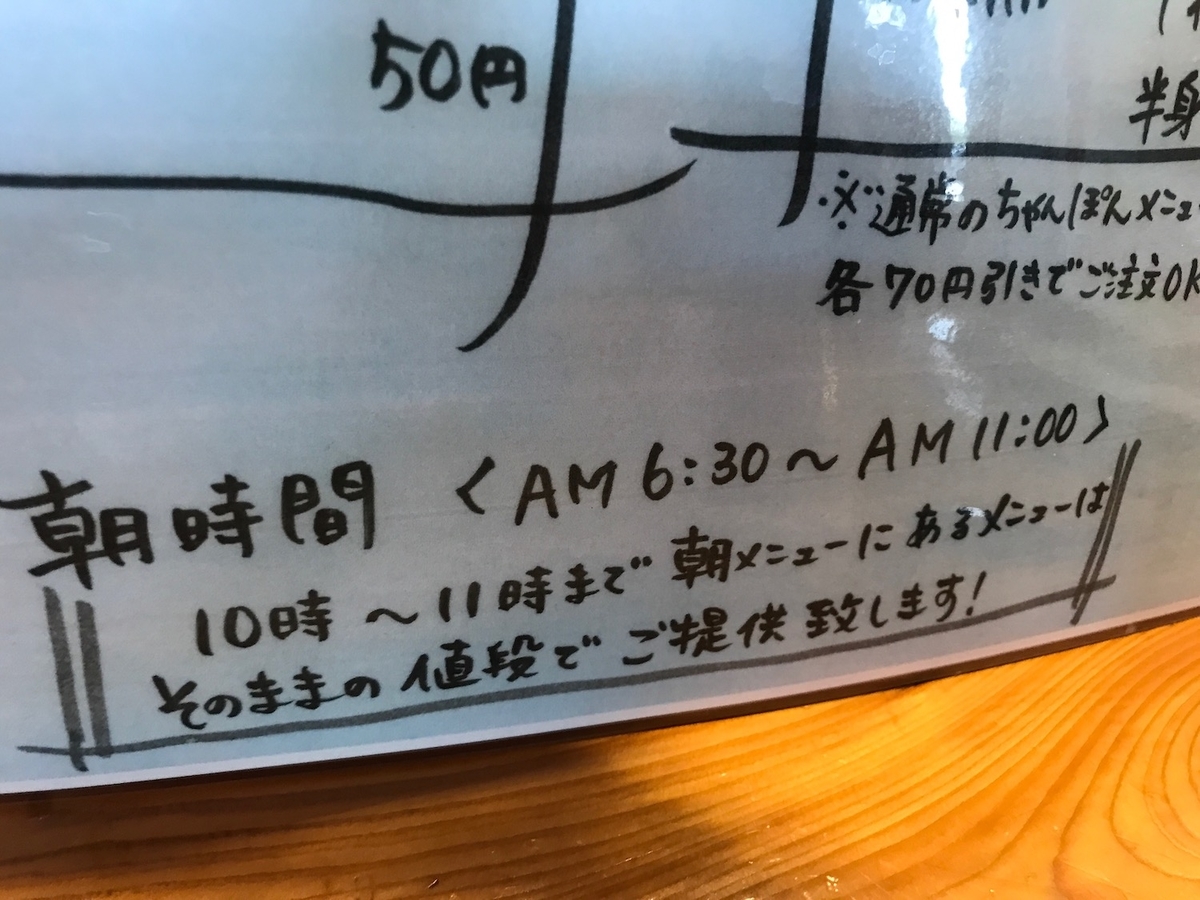 50円
半身
※通常のちゃんぽんメニュ
各70円引きでご注文OK
朝時間 〈AM 6:30〜AM 11:00〉
10時〜11時まで朝メニューにあるメニューは
そのままの値段でご提供致します!